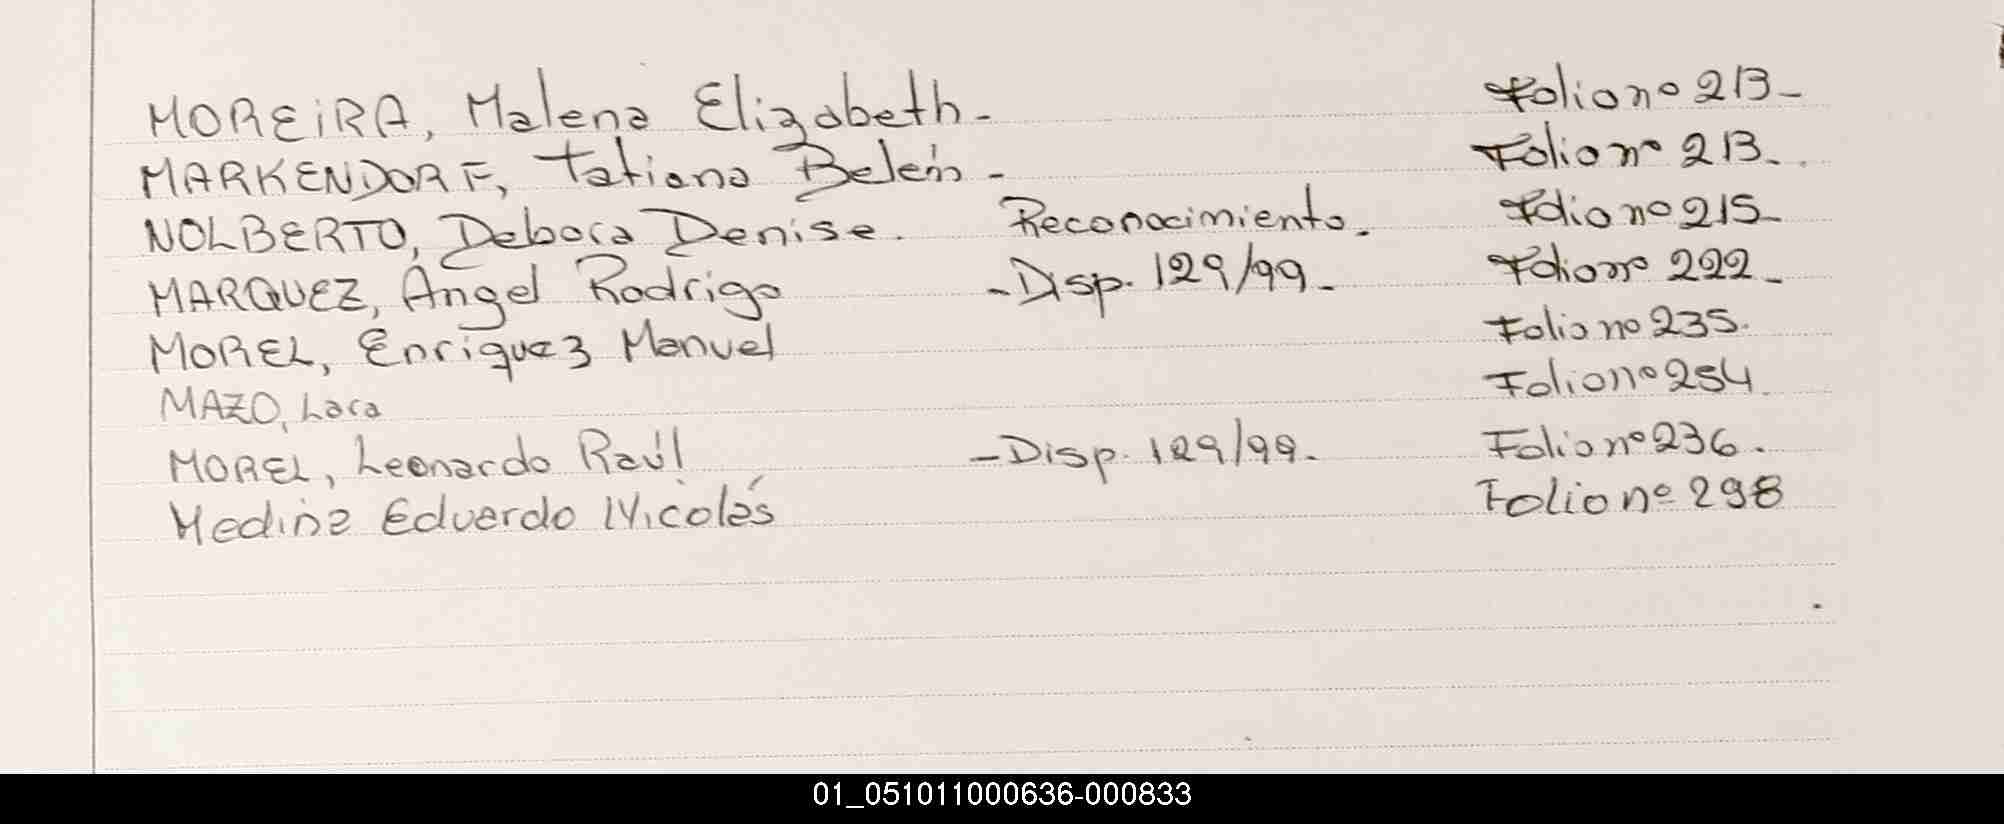 MOREIRA, Malena Elizabeth- Folio nº 213-
MARKENDORF, Tatiana Belén - Folio nº 213.
NOLBERTO, Debora Denise. Reconocimiento. Folio nº 215-
MARQUEZ, Angel Rodrigo -Disp. 129/99.- Folio nº 222-
MOREL, Enriquez Manuel Folio nº 235.
MAZO, Lara Folio nº 254.
MOREL, Leonardo Raúl -Disp. 129/99. Folio nº 236.
Medina Eduardo Nicolás Folio nº 298
01_051011000636-000833